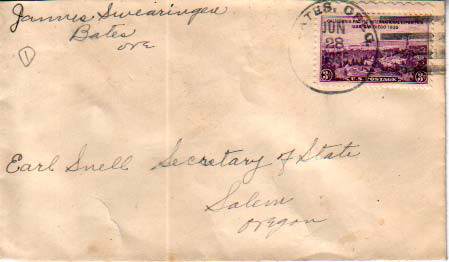 Jannes Swearingen
Bates
Ore
1
BATES, OREG.
JUN
28
CALIFORNIA PACIFIC INTERNATIONAL EXPOSITION
SAN DIEGO 1935
3 U.S. POSTAGE 3
Earl Snell Secretary of State
Salem
Oregon